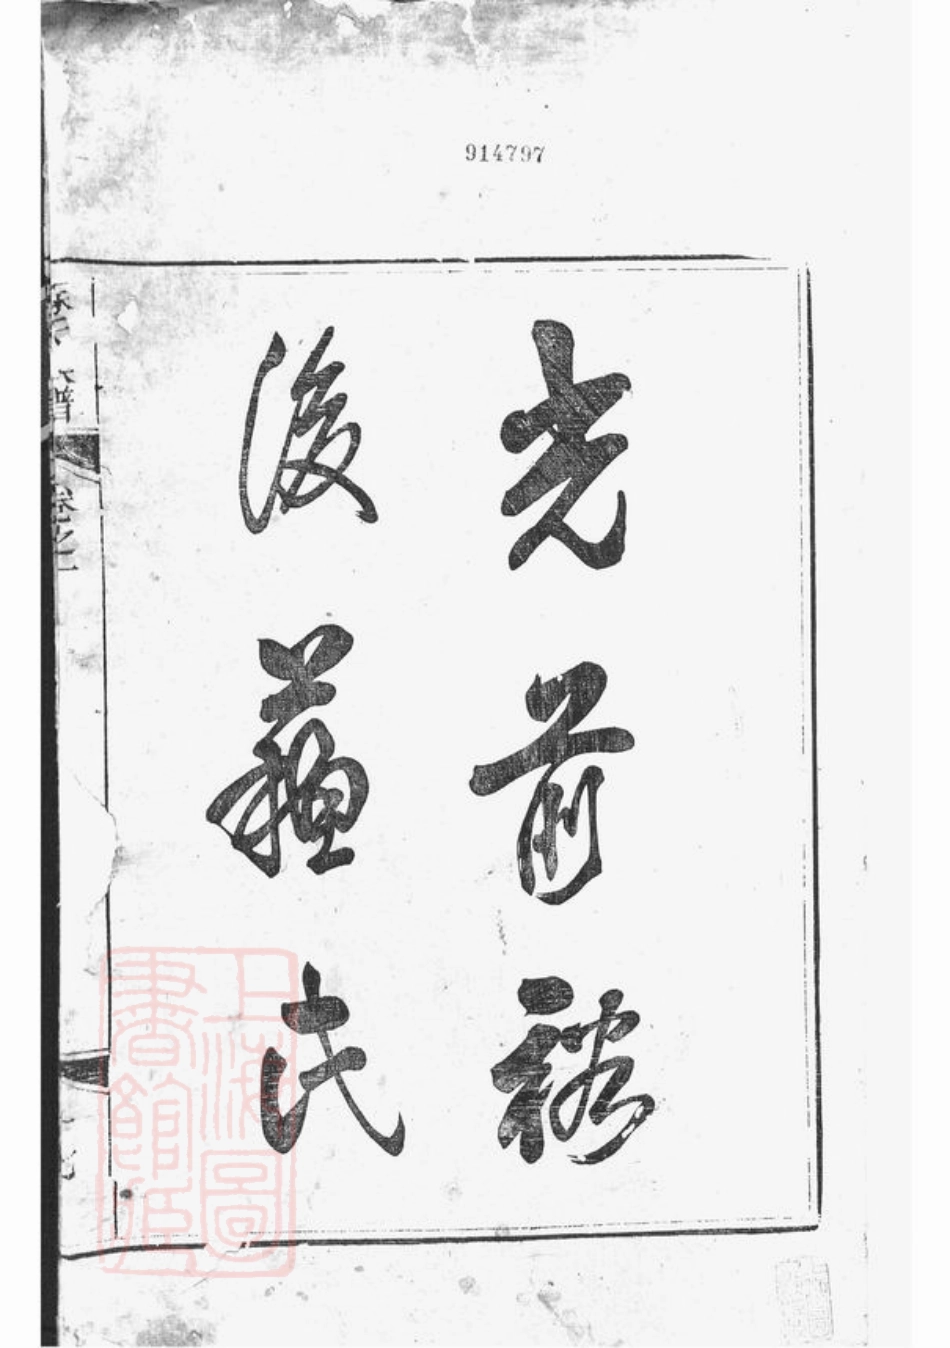 914797
光前裕
後蘇氏
譜
卷之一
上海圖
書館藏